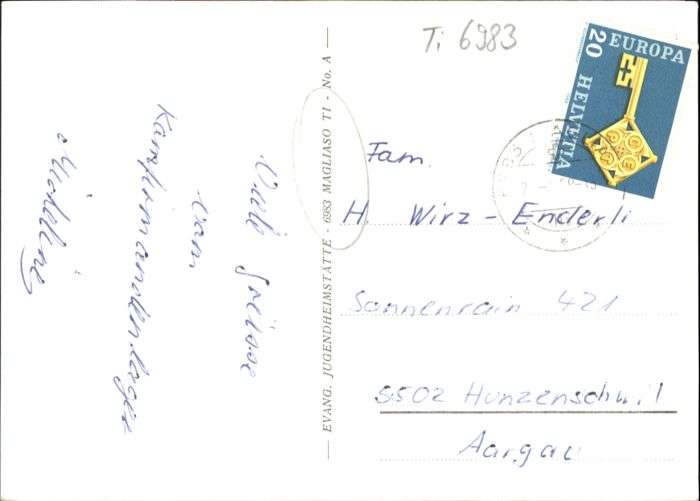 Ti 6983
20 EUROPA
HELVETIA
Viele Grüsse
vom
Konfirmandenlager
EVANG. JUGENDHEIMSTÄTTE - 6983 MAGLIASO TI - No. A
Fam.
H. Wirz-Enderli
Sonnenrain 421
5502 Hunzenschwil
Aargau